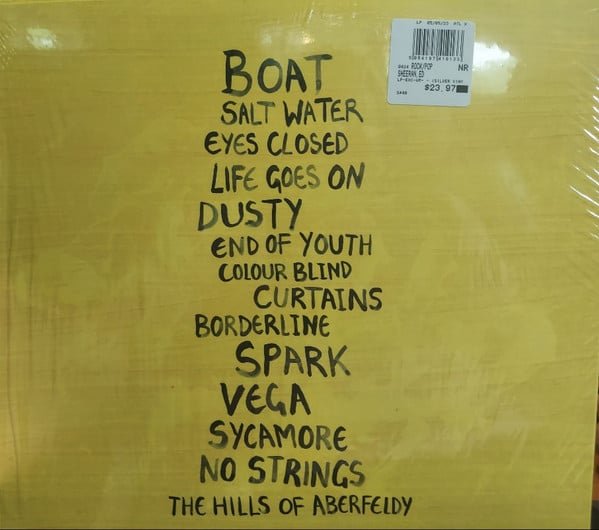 LP 05/05/23 ATL X
ROCK/POP NR
SHEERAN, ED
$23.97
BOAT
SALT WATER
EYES CLOSED
LIFE GOES ON
DUSTY
END OF YOUTH
COLOUR BLIND
CURTAINS
BORDERLINE
SPARK
VEGA
SYCAMORE
NO STRINGS
THE HILLS OF ABERFELDY